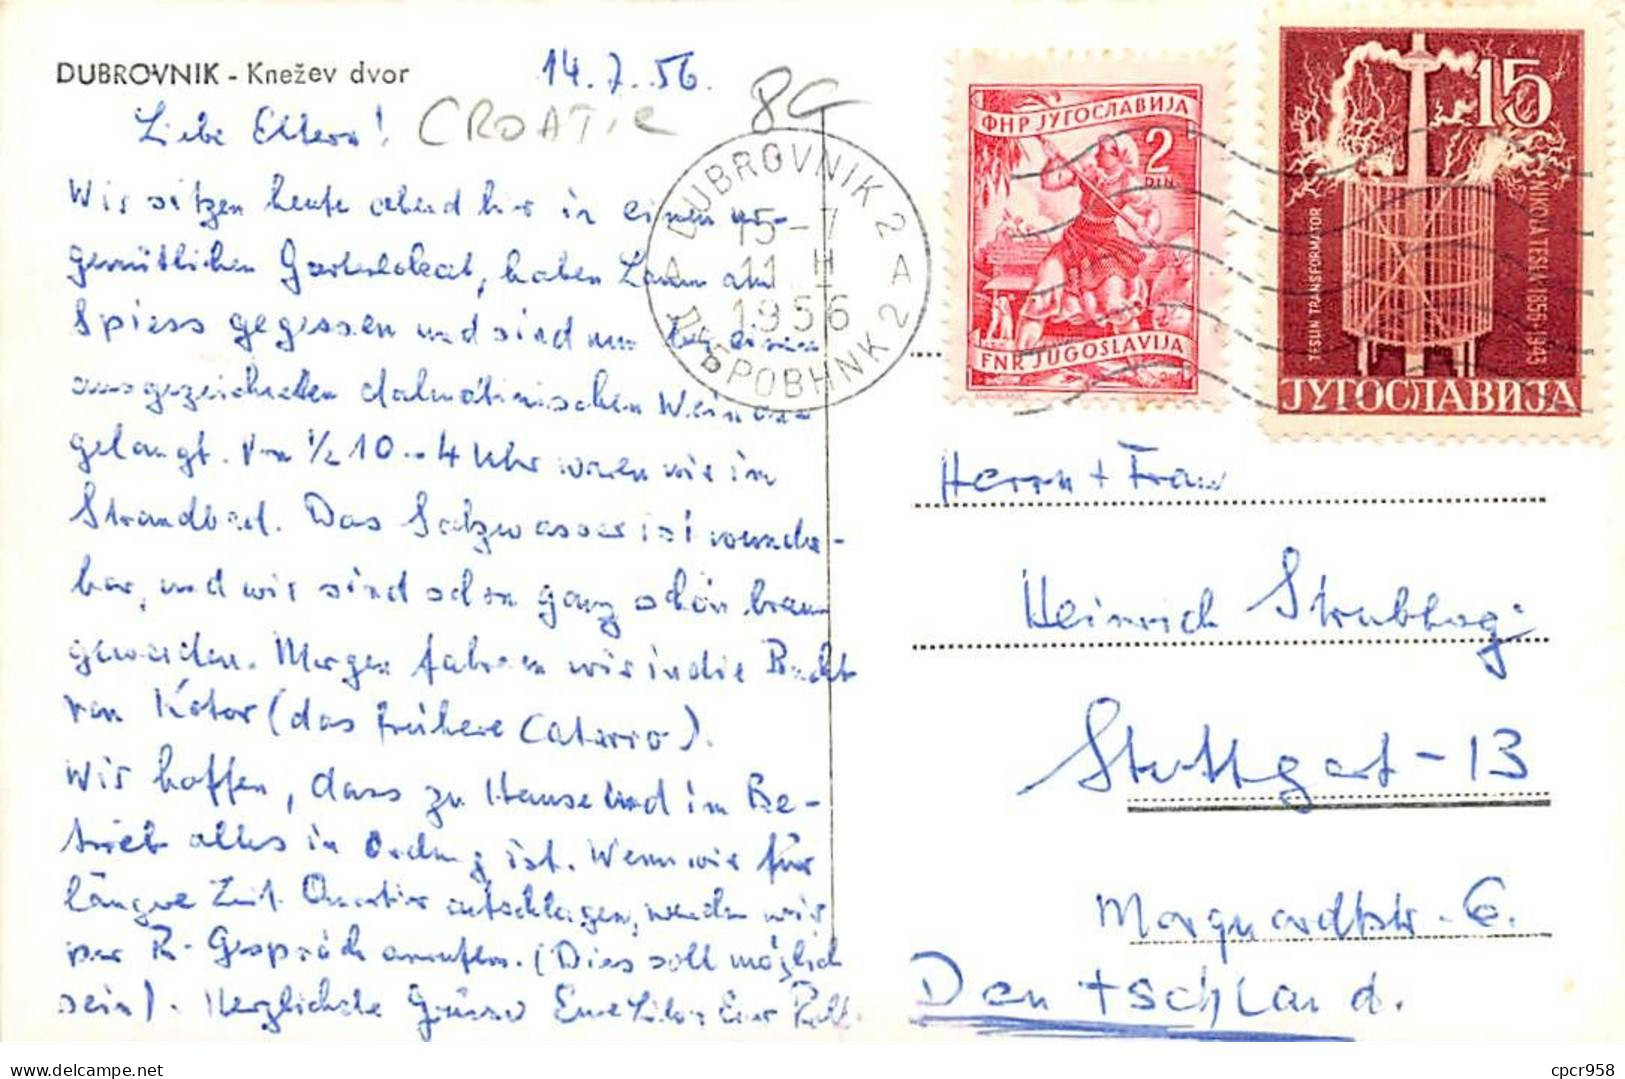 DUBROVNIK - Knežev dvor
14.7.56.
8G
Liebe Eltern!
CROATIE
Wir sitzen heute abend hier in einem ur-
gemütlichen Gartenlokal, haben Lamm am
Spiess gegessen und sind nun bei einem
ausgezeichneten dalmatinischen Wein an-
gelangt. Von ½10 - 4 Uhr waren wir im
Strandbad. Das Salzwasser ist wunder-
bar, und wir sind schon ganz schön braun
geworden. Morgen fahren wir in die Bucht
von Kotor (das frühere Cattaro).
Wir hoffen, dass zu Hause und im Be-
trieb alles in Ordnung ist. Wenn wir für
längere Zeit Quartier aufschlagen, werden wir
per R-Gespräch anrufen. (Dies soll möglich
sein). Herzlichste Grüsse Eure Euer
DUBROVNIK 2
A 15-7 A
11 H
1956
ДУБРОВНИК 2
ФНР ЈУГОСЛАВИЈА
2
DIN
FNR JUGOSLAVIJA
15
TESLIN TRANSFORMATOR
NIKOLA TESLA 1856-1943
ЈУГОСЛАВИЈА
Herrn + Frau
Heinrich
Stuttgart-13
Marquardtstr. 6.
Deutschland.
delcampe.net
cpcr958